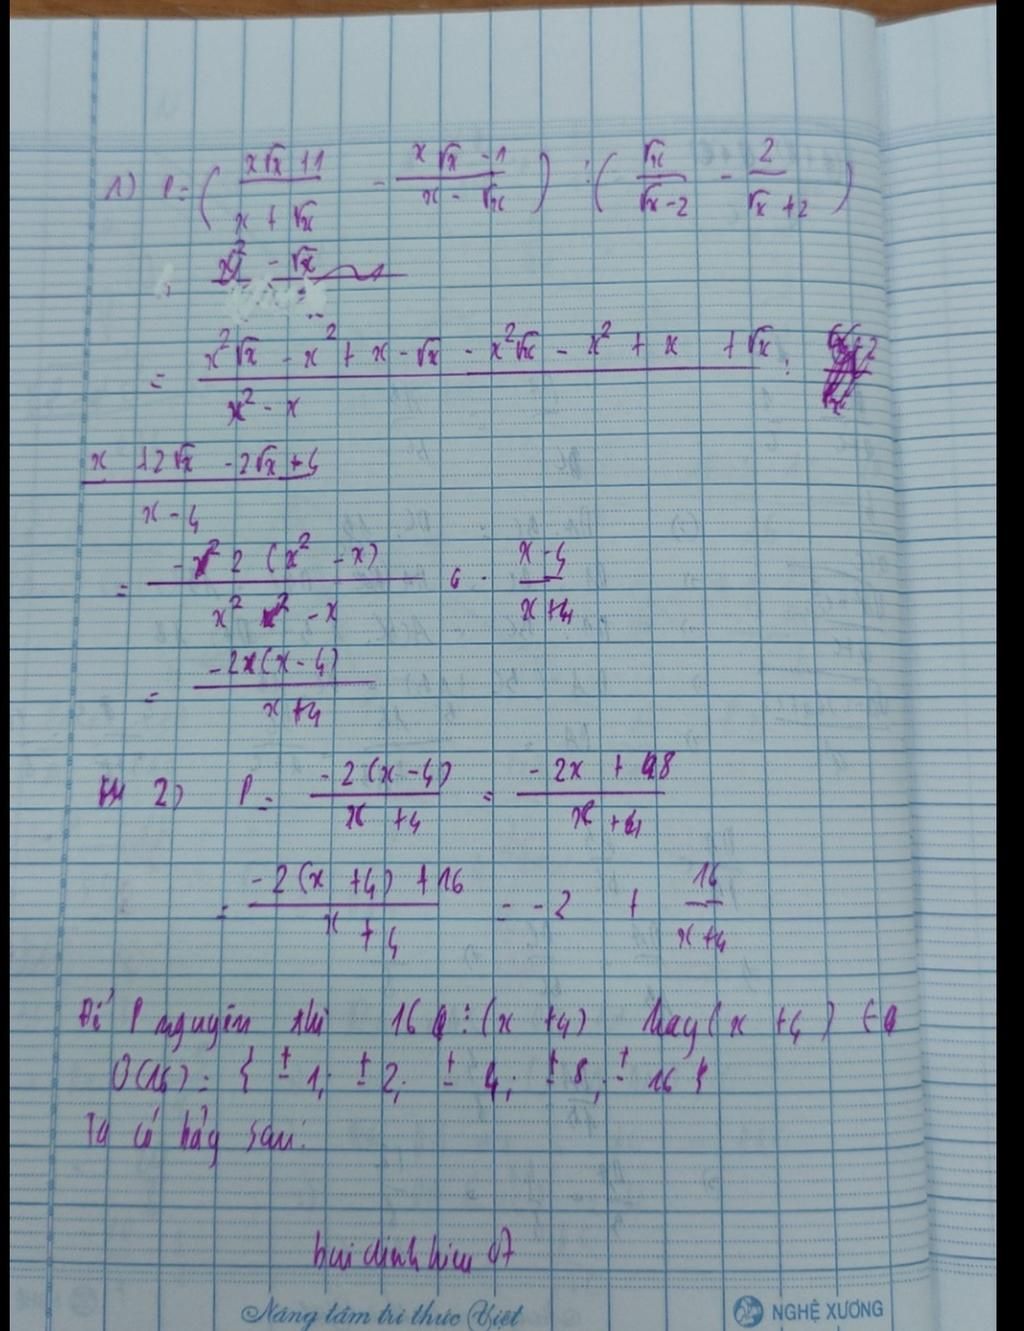 1) P = ( \frac{x\sqrt{x} + 1}{x + \sqrt{x}} - \frac{x\sqrt{x} - 1}{x - \sqrt{x}} ) : ( \frac{\sqrt{x}}{\sqrt{x} - 2} - \frac{2}{\sqrt{x} + 2} )
= \frac{x^2\sqrt{x} - x^2 + x - \sqrt{x} - x^2\sqrt{x} - x^2 + x + \sqrt{x}}{x^2 - x} :
\frac{x + 2\sqrt{x} - 2\sqrt{x} + 4}{x - 4}
= \frac{-2(x^2 - x)}{x^2 - x} \cdot \frac{x - 4}{x + 4}
= \frac{-2x(x - 4)}{x + 4}
2) P = \frac{-2(x - 4)}{x + 4} = \frac{-2x + 8}{x + 4}
= \frac{-2(x + 4) + 16}{x + 4} = -2 + \frac{16}{x + 4}
Để P nguyên khi 16 ⋮ (x + 4) hay (x + 4) ∈
Ư(16) = { ± 1; ± 2; ± 4; ± 8; ± 16 }
Ta có bảg sau:
bui dinh hieu 07
Nâng tầm tri thức Việt
NGHỆ XƯƠNG